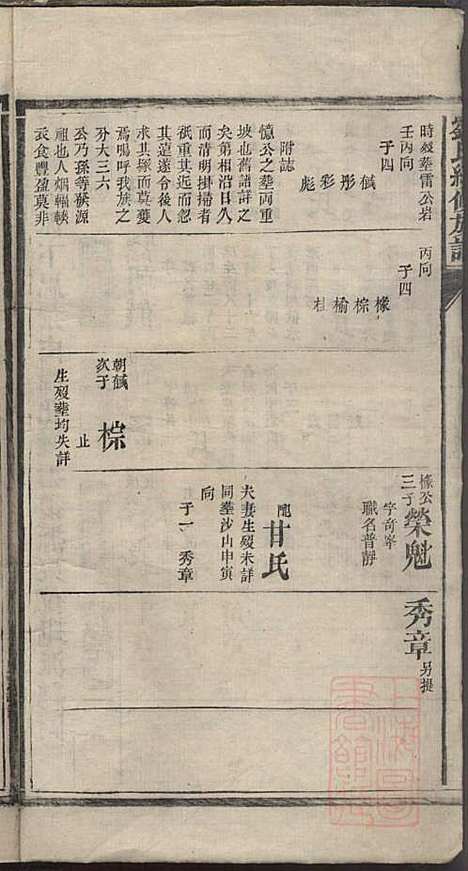 時歿塟雷公岩
壬丙向
子四
鉞
彤
彩
彪
附誌
憶公之塟両重
坡也舊譜詳之
矣第相沿日久
而清明掛掃者
祇重其近而忽
其遠遂令後人
求其琢而莫蔓
焉嗚呼我族之
分大三六
公乃孫等發源
祖也人烟輻輳
衣食豐盈莫非
丙向
子四
橡
棕
榆
桂
朝鉞
次子
棕
止
生歿塟均失詳
橡公
三子
榮魁
字奇寧
職名普靜
配
甘氏
夫妻生歿未詳
同塟沙山申寅
向
子一
秀章
秀章
另提